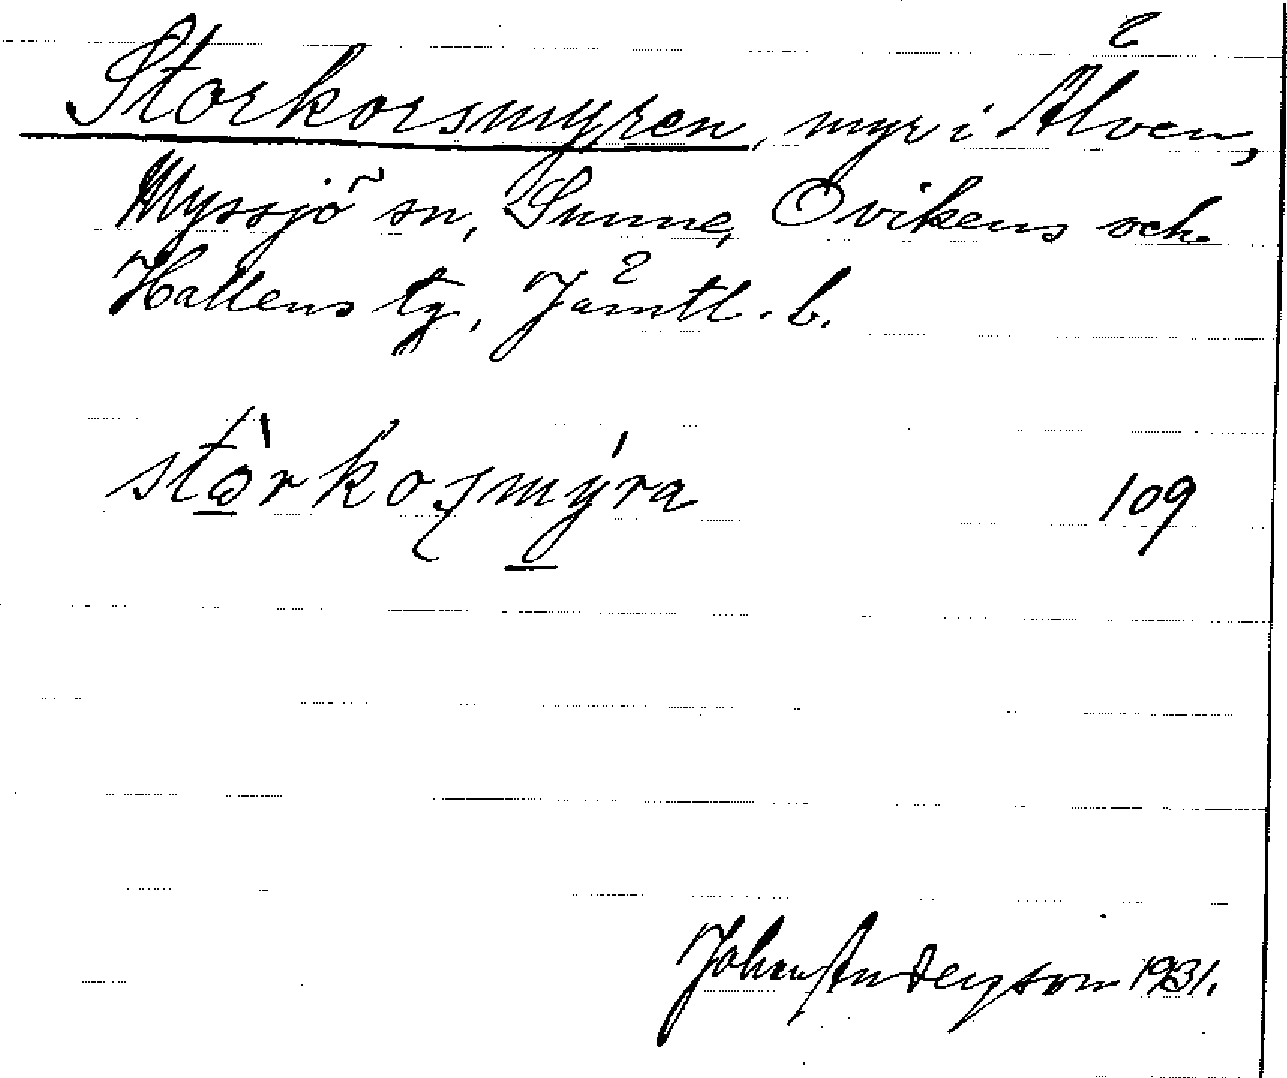 Storkorsmyren, myr i Älven,
Myssjö sn, Sunne, Ovikens och
Hallens tg, Jämtl. b.
109
Johan Anderson 1931.